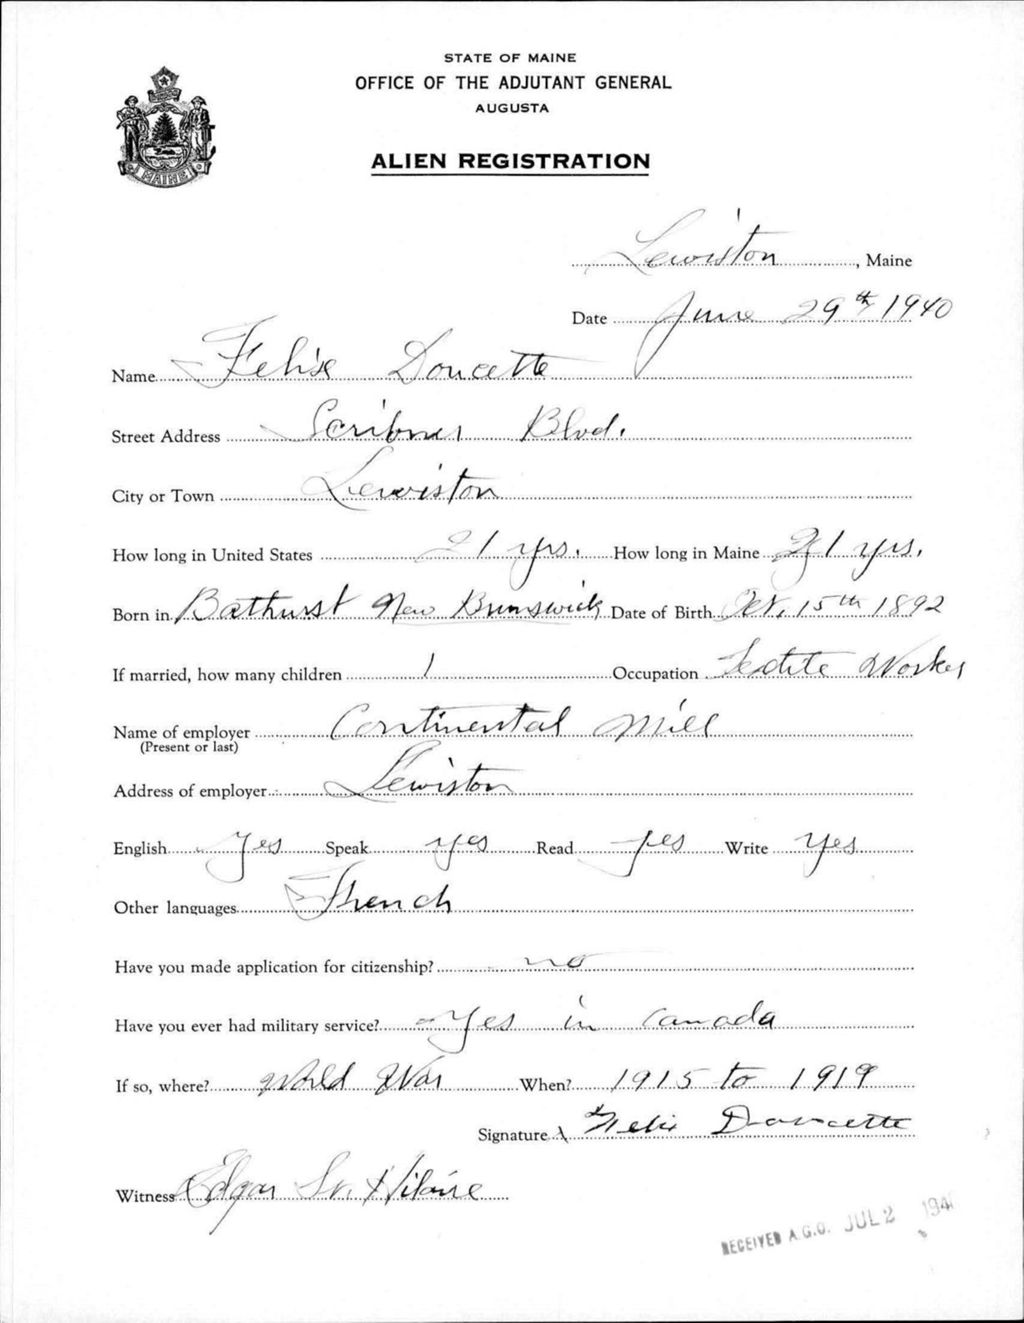 STATE OF MAINE
OFFICE OF THE ADJUTANT GENERAL
AUGUSTA
MAINE
ALIEN REGISTRATION
Lewiston, Maine
Date June 29th 1940
Name Felix Doucette
Street Address Scribner Blvd.
City or Town Lewiston
How long in United States 21 yrs. How long in Maine 21 yrs.
Born in Bathurst New Brunswick Date of Birth Oct. 15th 1892
If married, how many children 1 Occupation Textile Worker
Name of employer Continental Mill
(Present or last)
Address of employer Lewiston
English Yes Speak yes Read yes Write Yes
Other languages French
Have you made application for citizenship? no
Have you ever had military service? Yes in Canada
If so, where? World War When? 1915 to 1919
Signature X Felix Doucette
Witness Edgar St. Hilaire
RECEIVED A.G.O. JUL 2 1940